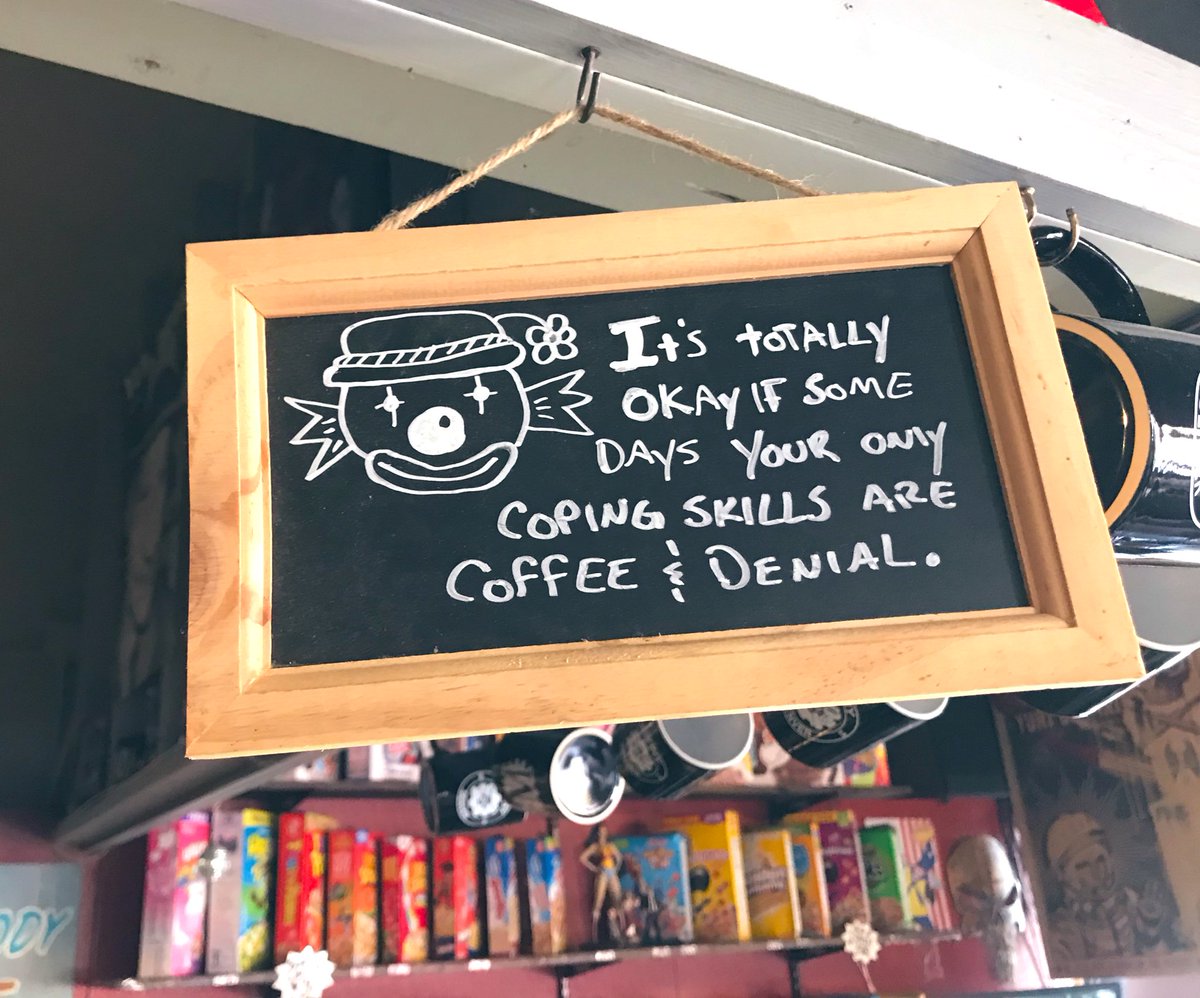 It's totally
okay if some
days your only
coping skills are
coffee & denial.
DDY